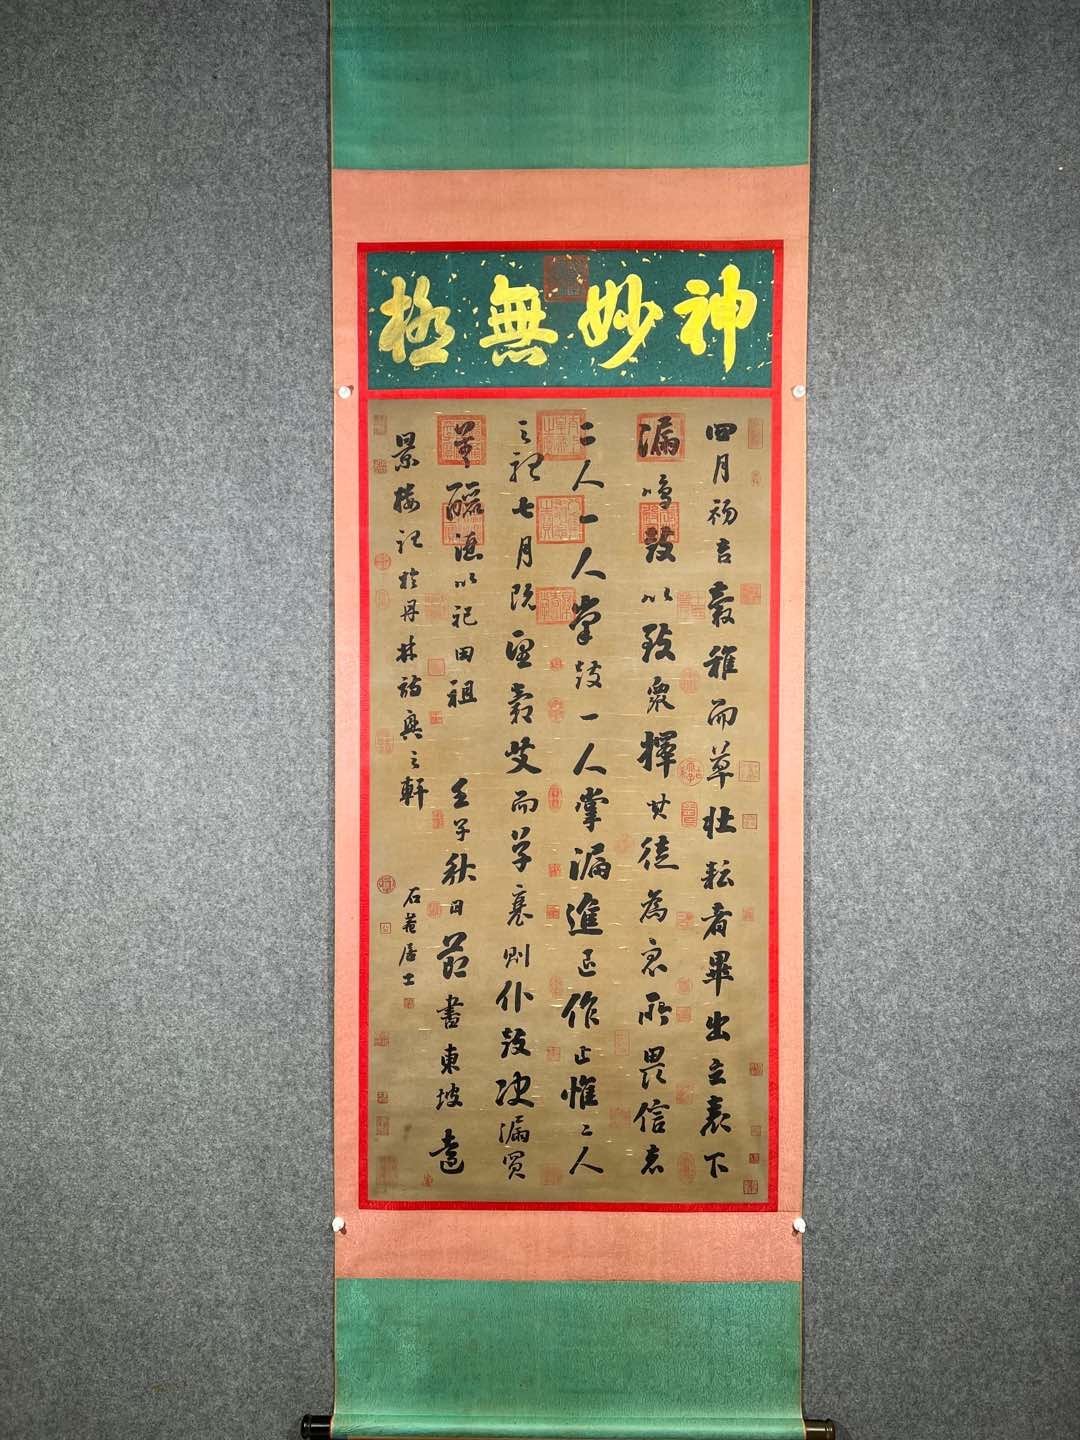 神妙無極
四月初吉穀稚而草壯耘者畢出立表下
漏鳴鼓以致衆擇其徒為衆所畏信者
二人一人掌鼓一人掌漏進退作止惟二人
之聽七月既望穀艾而草衰則仆鼓決漏買
羊釀酒以祀田祖 壬子秋日節書東坡遠
景樓記於丹林詩興之軒
石菴居士